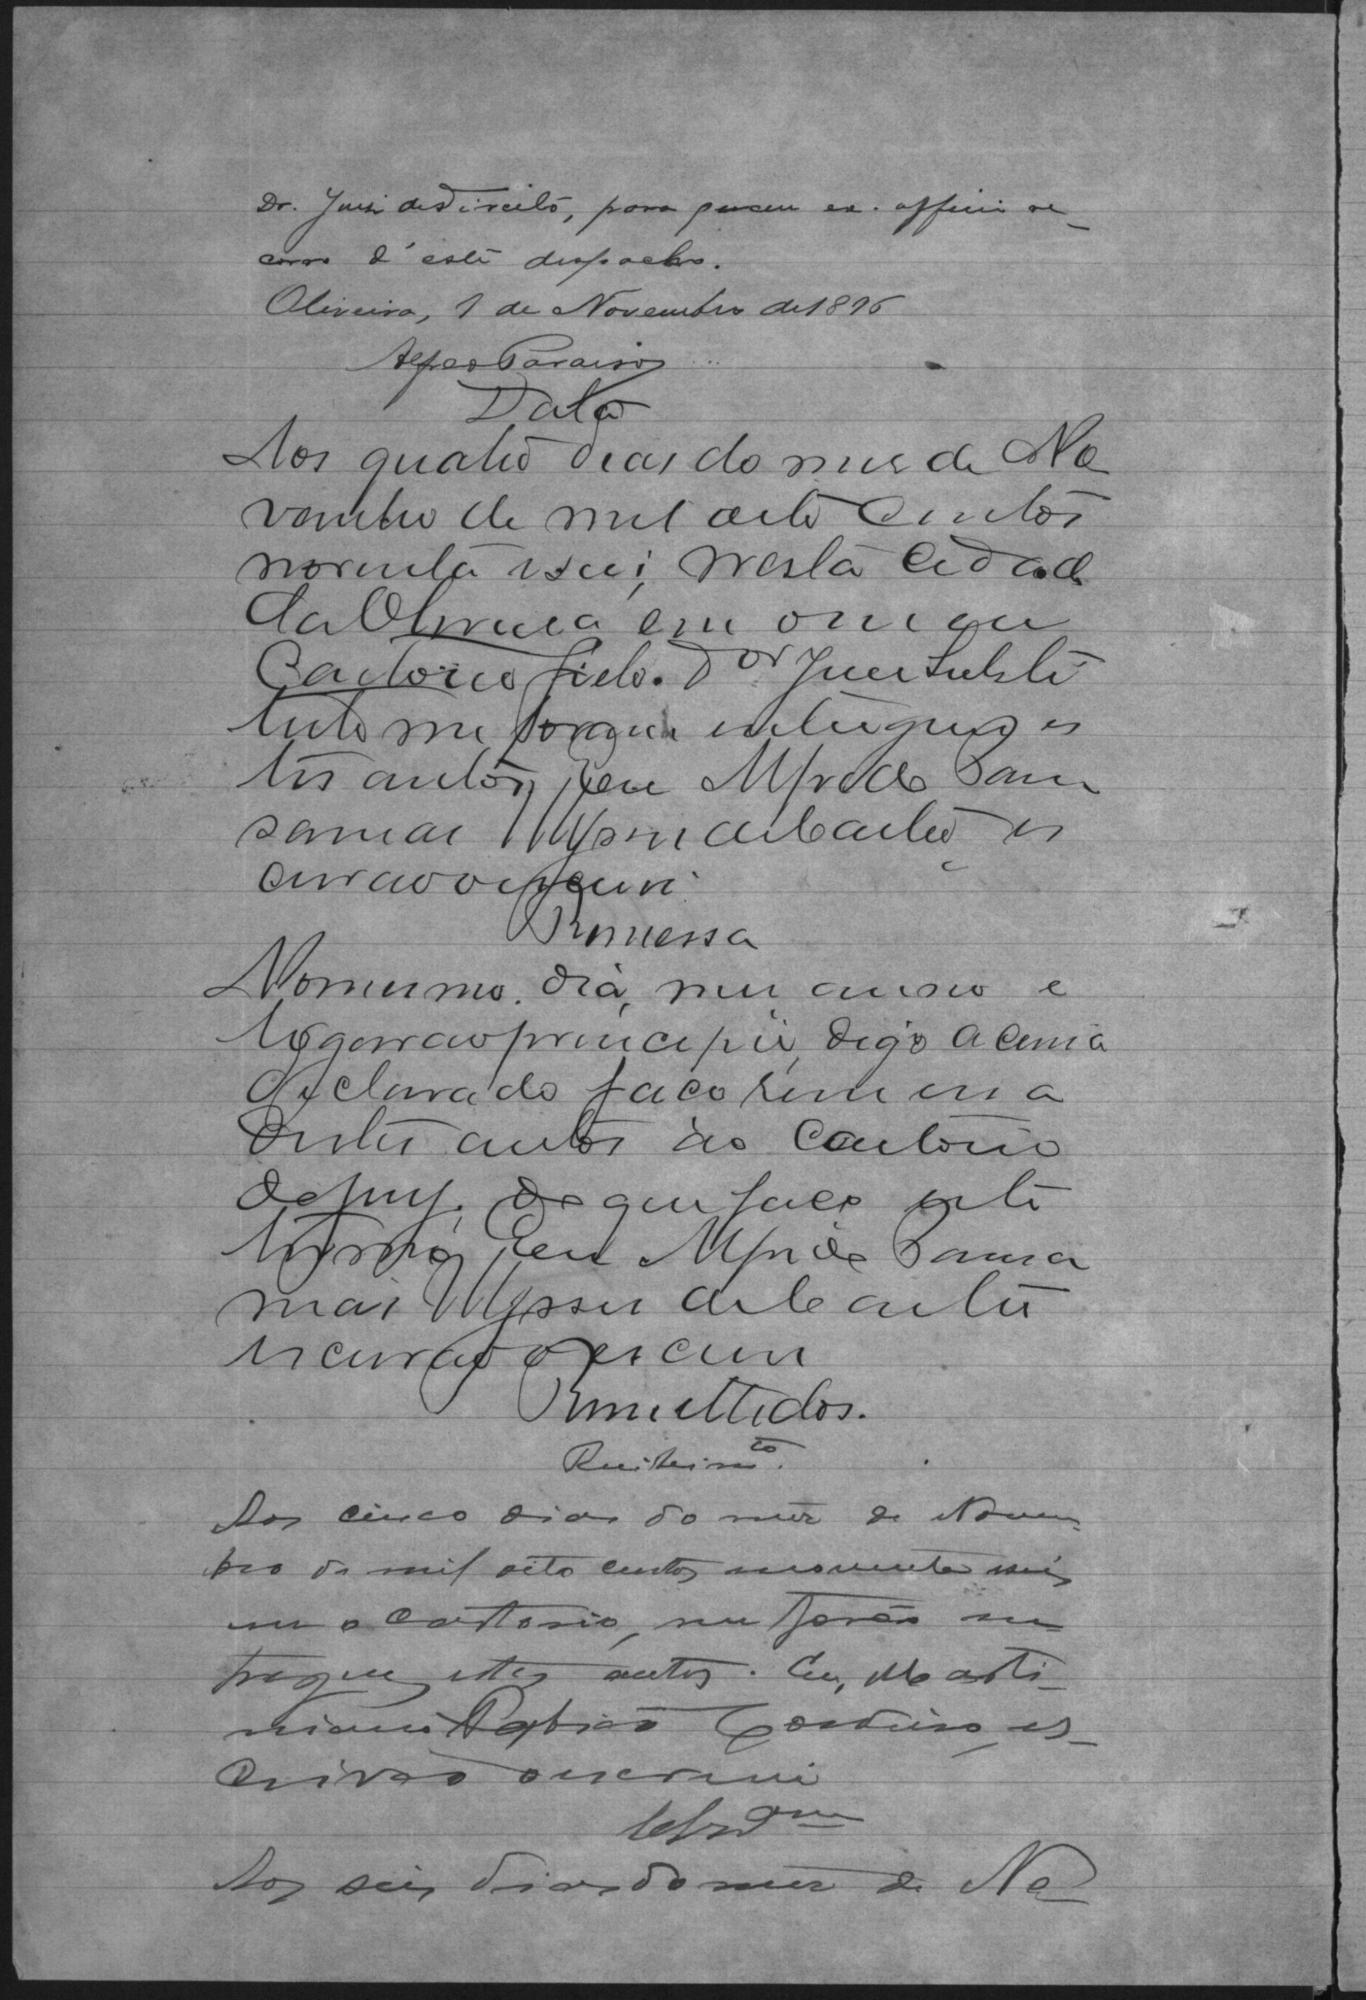 Dr. Juiz de Direito, para quem ex-officio re-
corro d'este despacho.
Oliveira, 1 de Novembro de 1896
Paraiso
Data
Aos quatro dias do mes de No
vembro de mil oito centos
noventa e seis, nesta cidade
da Oliveira em o meu
Cartorio pelo Dor Juiz Substi
tuto me foram entregues es
tes autos, Eu Alfredo
de Castro es
crivão o escrevi
Remessa
No mesmo dia, mez anno e
logar ao principio, digo acima
declarado faço remessa
destes autos ao Cartorio
do jury. do que faço este
termo, Eu Alfredo
de Castro
escrivão o escrevi
Remettidos.
Recebimto.
Aos cinco dias do mez de Novem-
bro de mil oito centos noventa e seis
em o Cartorio, me forão en-
tregues estes autos. Eu, Marti-
niano es-
crivão o escrevi
Clsão
Aos seis dias do mez de No-